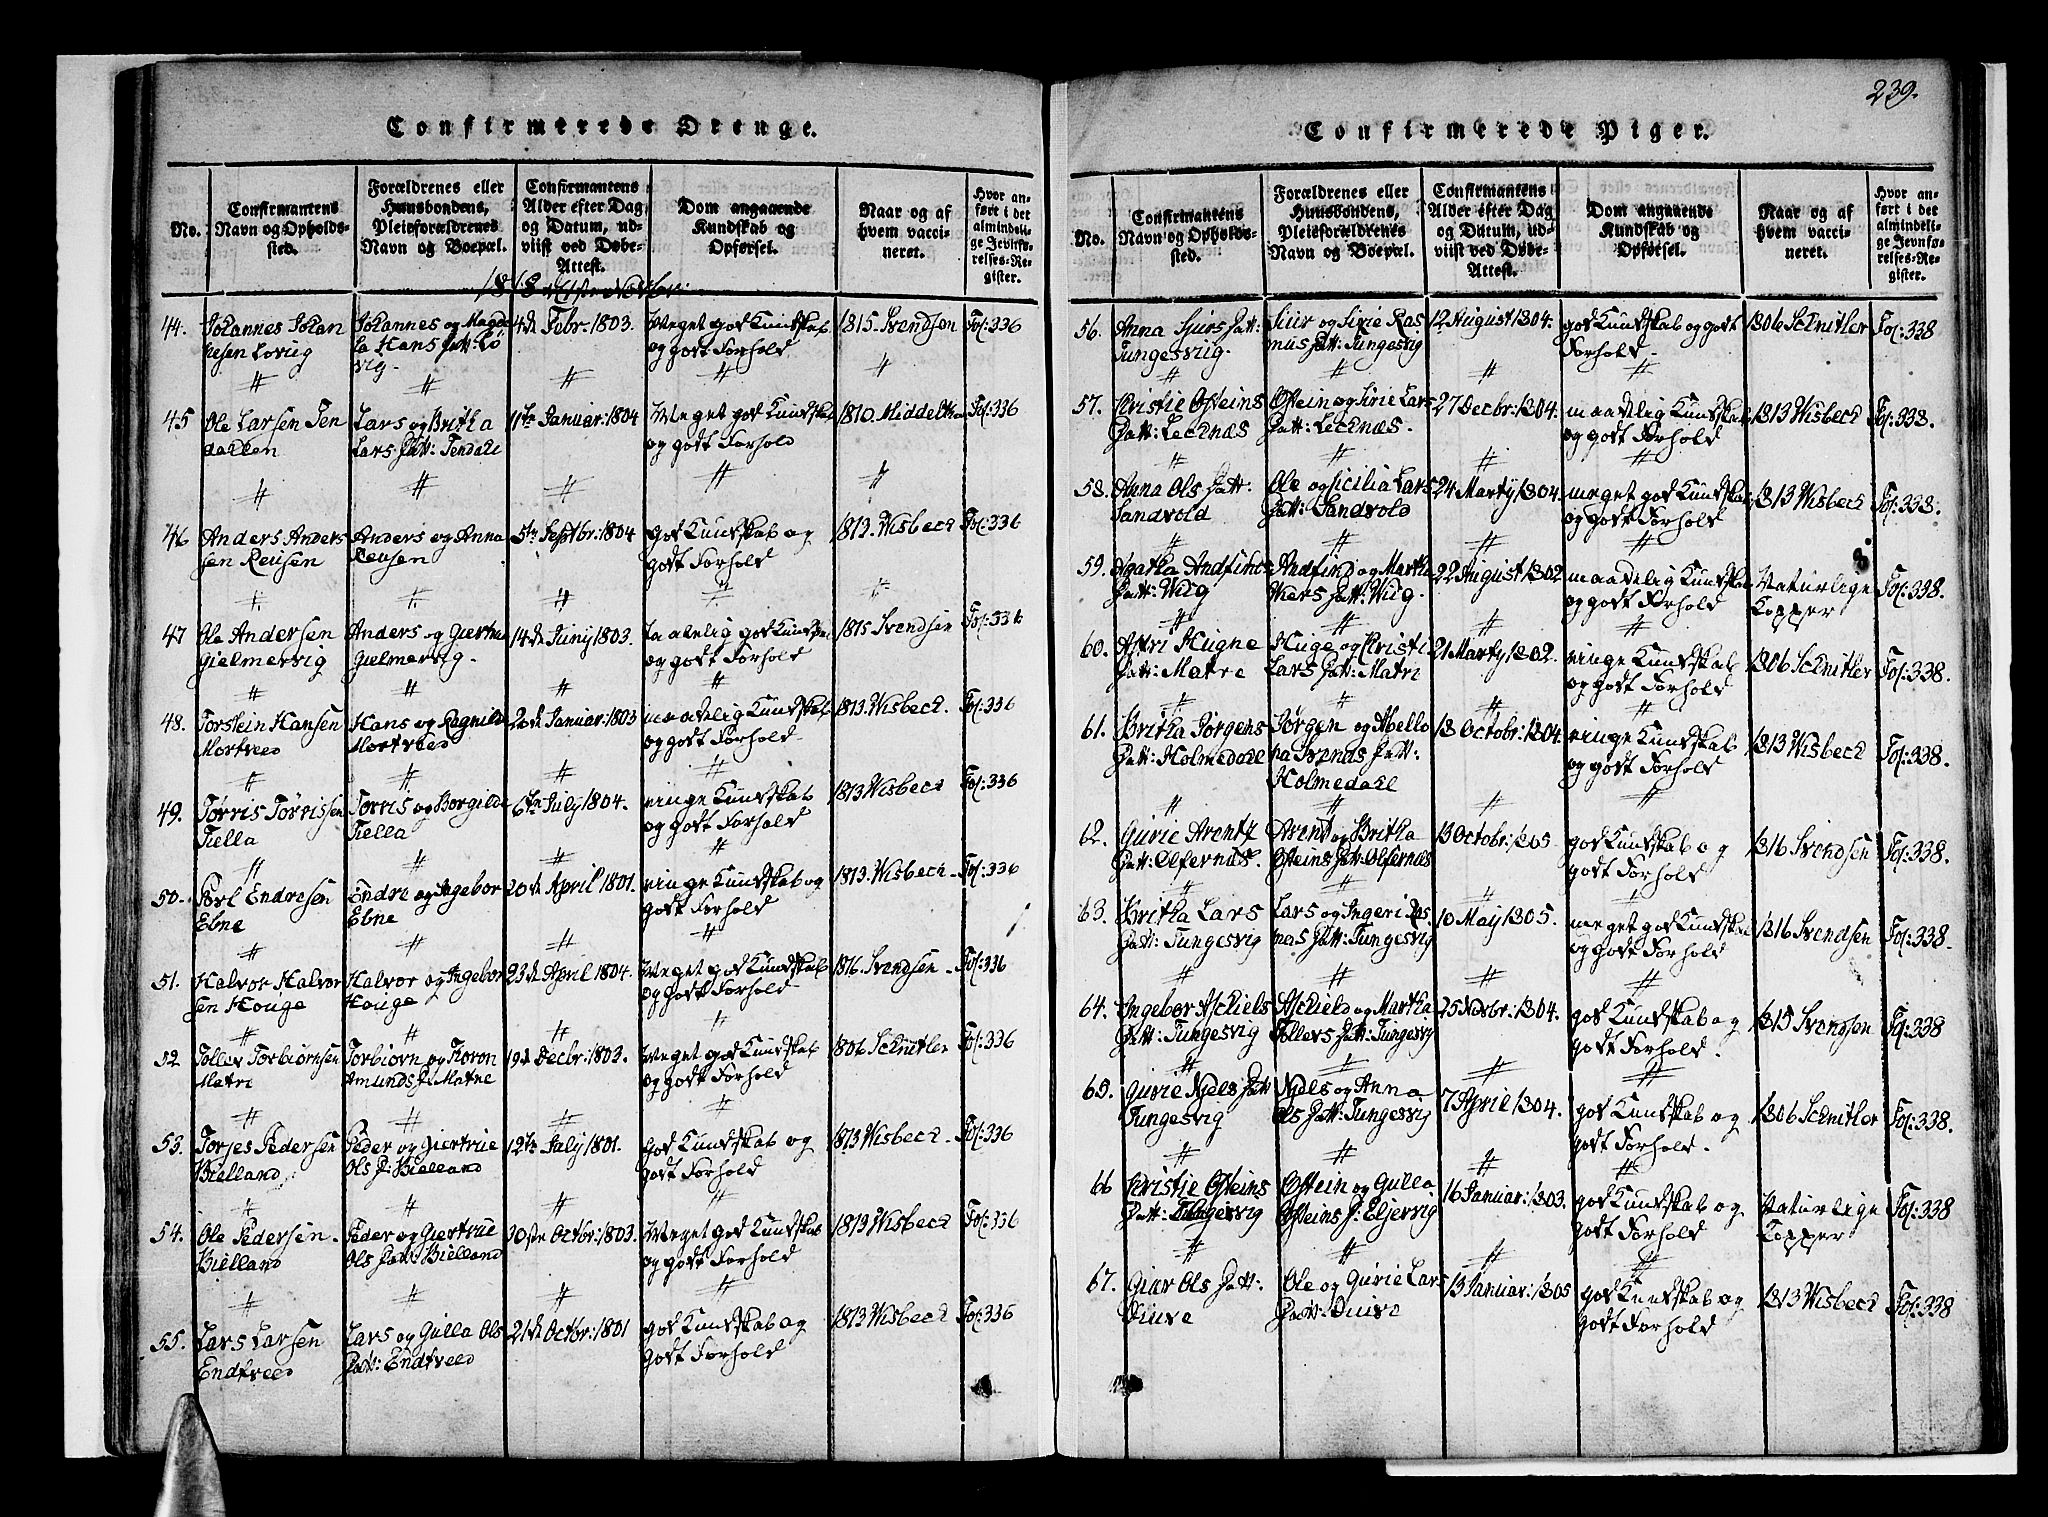 239.
Confirmerede Drenge.
No.
Confirmantens
Navn og Opholds-
sted.
Forældrenes eller
Huusbondens,
Pleieforældrenes
Navn og Boepæl.
Confirmantens
Alder efter Dag
og Datum, ud-
viist ved Døbe-
Attest.
Dom angaaende
Kundskab og
Opførsel.
Naar og af
hvem vacci-
neret.
Hvor an-
ført i det
almindeli-
ge Jevnfø-
relses-Re-
gister.
1818 1ste Novbr:
44. Johannes Johan
nesen Lovig
Johannes og Magde
la Hans Datt: Lø
vig.
4de Febr: 1803.
Meget god Kundskab
og godt Forhold
1815. Svendsen
Fol: 336
45 Ole Larsen Ten
dallen
Lars og Britha
Lars Datt: Tendall
11te Januar: 1804
Meget god Kundskab
og godt Forhold
1810. Middelthon
Fol: 336
46 Anders Anders
sen Reusen
Anders og Anna
Reusen
5te Septbr: 1804
god Kundskab og
godt Forhold
1813. Wisbeck
Fol: 336
47 Ole Andersen
Gielmervig
Anders og Giertru
Gielmervig.
14de Juny 1803.
taalelig god Kundskab
og godt Forhold
1815 Svendsen
Fol: 336
48. Torstein Hansen
Mortveed
Hans og Ragnilda
Mortveed
20de Januar: 1803
maadelig Kundskab
og godt Forhold
1813. Wisbeck.
Fol: 336
49. Tørris Tørrissen
Tiella
Torris og Borgilda
Tiella
6te July 1804.
ringe Kundskab
og godt Forhold
1813 Wisbeck
Fol: 336
50. Carl Endresen
Ebne
Endre og Ingebor
Ebne
20de April 1801.
ringe Kundskab og
godt Forhold
1813. Wisbeck
Fol: 336
51. Halvor Halvor
sen Houge
Halvor og Ingebor
Houge
23de April 1804.
Meget god Kundskab
og godt Forhold
1816 Svendsen
Fol: 336
52 Tollev Torbiørnsen
Matri
Torbiørn og Koron
Amunds D: Matne
19de Decbr: 1803.
Meget god Kundskab
og godt Forhold
1806. Schnitler
Fol: 336
53. Torjes Pedersen
Bielland
Peder og Giertrue
Ols D: Bielland
12te July 1801.
god Kundskab og
godt Forhold
1813 Wisbeck
Fol: 336
54. Ole Pedersen
Bielland
Peder og Giertrue
Ols Datt: Bielland
30ste Octbr: 1803.
Meget god Kundskab
og godt Forhold
1813 Wisbeck
Fol: 336
55. Lars Larsen
Endtveed
Lars og Gulla Ols
Datt: Endtveed
21de Octbr: 1801
god Kundskab og
godt Forhold
1813 Wisbeck
Fol: 336
Confirmerede Piger.
No.
Confirmantens
Navn og Opholds-
sted.
Forældrenes eller
Huusbondens,
Pleieforældrenes
Navn og Boepæl.
Confirmantens
Alder efter Dag
og Datum, ud-
viist ved Døbe-
Attest.
Dom angaaende
Kundskab og
Opførsel.
Naar og af
hvem vacci-
neret.
Hvor an-
ført i det
almindeli-
ge Jevnfø-
relses-Re-
gister.
56. Anna Sjurs Datt:
Tungesvig.
Siur og Sirie Ras
mus Datt: Tungesvig
12 August 1804.
god Kundskab og godt
Forhold
1806 Schnitler
Fol: 338
57. Kristie Østeins
Datt: Lechnæs
Østein og Sirie Lars
Datt: Lechnæs.
27 Decbr: 1804.
maadelig Kundskab
og godt Forhold
1813 Wisbeck
Fol: 338.
58. Anna Ols Datt:
Sandvold
Ole og Sicilia Lars
Datt: Sandvold
24 Marty 1804.
meget god Kundskab
og godt Forhold
1813 Wisbeck
Fol: 338.
59. Agatha Andfind
Datt: Wiig
Andfind og Martha
Datt: Wiig.
22 August 1802
maadelig Kundskab
og godt Forhold
Naturlige
Kopper
Fol: 338.
60. Astri Hugne
Datt: Matre
Huge og Christi
Lars Datt: Matri
21 Marty 1802.
ringe Kundskab
og godt Forhold
1806 Schnitler
Fol: 338.
61. Britha Jørgens
Datt: Holmedael
Jørgen og Abello
na Svends Datt:
Holmedael
18 Octobr: 1804.
ringe Kundskab
og godt Forhold
1813 Wisbeck
Fol: 338.
62. Gurie Arentz
Datt: Olfernæs.
Arend og Britha
Østeins Datt: Olfernæs
13 Octobr: 1805
god Kundskab og
godt Forhold
1816 Svendsen
Fol: 338.
63. Britha Lars
Datt: Tungesvig
Lars og Ingeri Ras
mus Datt: Tungesvig
10 May 1805.
meget god Kundskab
og godt Forhold
1816 Svendsen
Fol: 338.
64. Ingebor Askiels
Datt: Tungesvig
Askield og Martha
Tollevs Datt: Tungesvig
25 Novbr: 1804.
god Kundskab og
godt Forhold.
1815 Svendsen
Fol: 338
65. Gurie Njels Datt
Tungesvig
Njels og Anna
Ols Datt: Tungesvig
7 April 1804.
god Kundskab og
godt Forhold.
1806 Schnitler
Fol: 338.
66 Kristie Østeins
Datt: Tungesvig
Østein og Gulla
Østeins D: Eljervig
16 Januar: 1803.
god Kundskab og
godt Forhold
Naturlige
Kopper
Fol: 338
67. Giar Ols Datt:
Duve
Ole og Gurie Lars
Datt: Duve
13 Januar: 1805
god Kundskab og
godt Forhold
1813 Wisbeck
Fol: 338